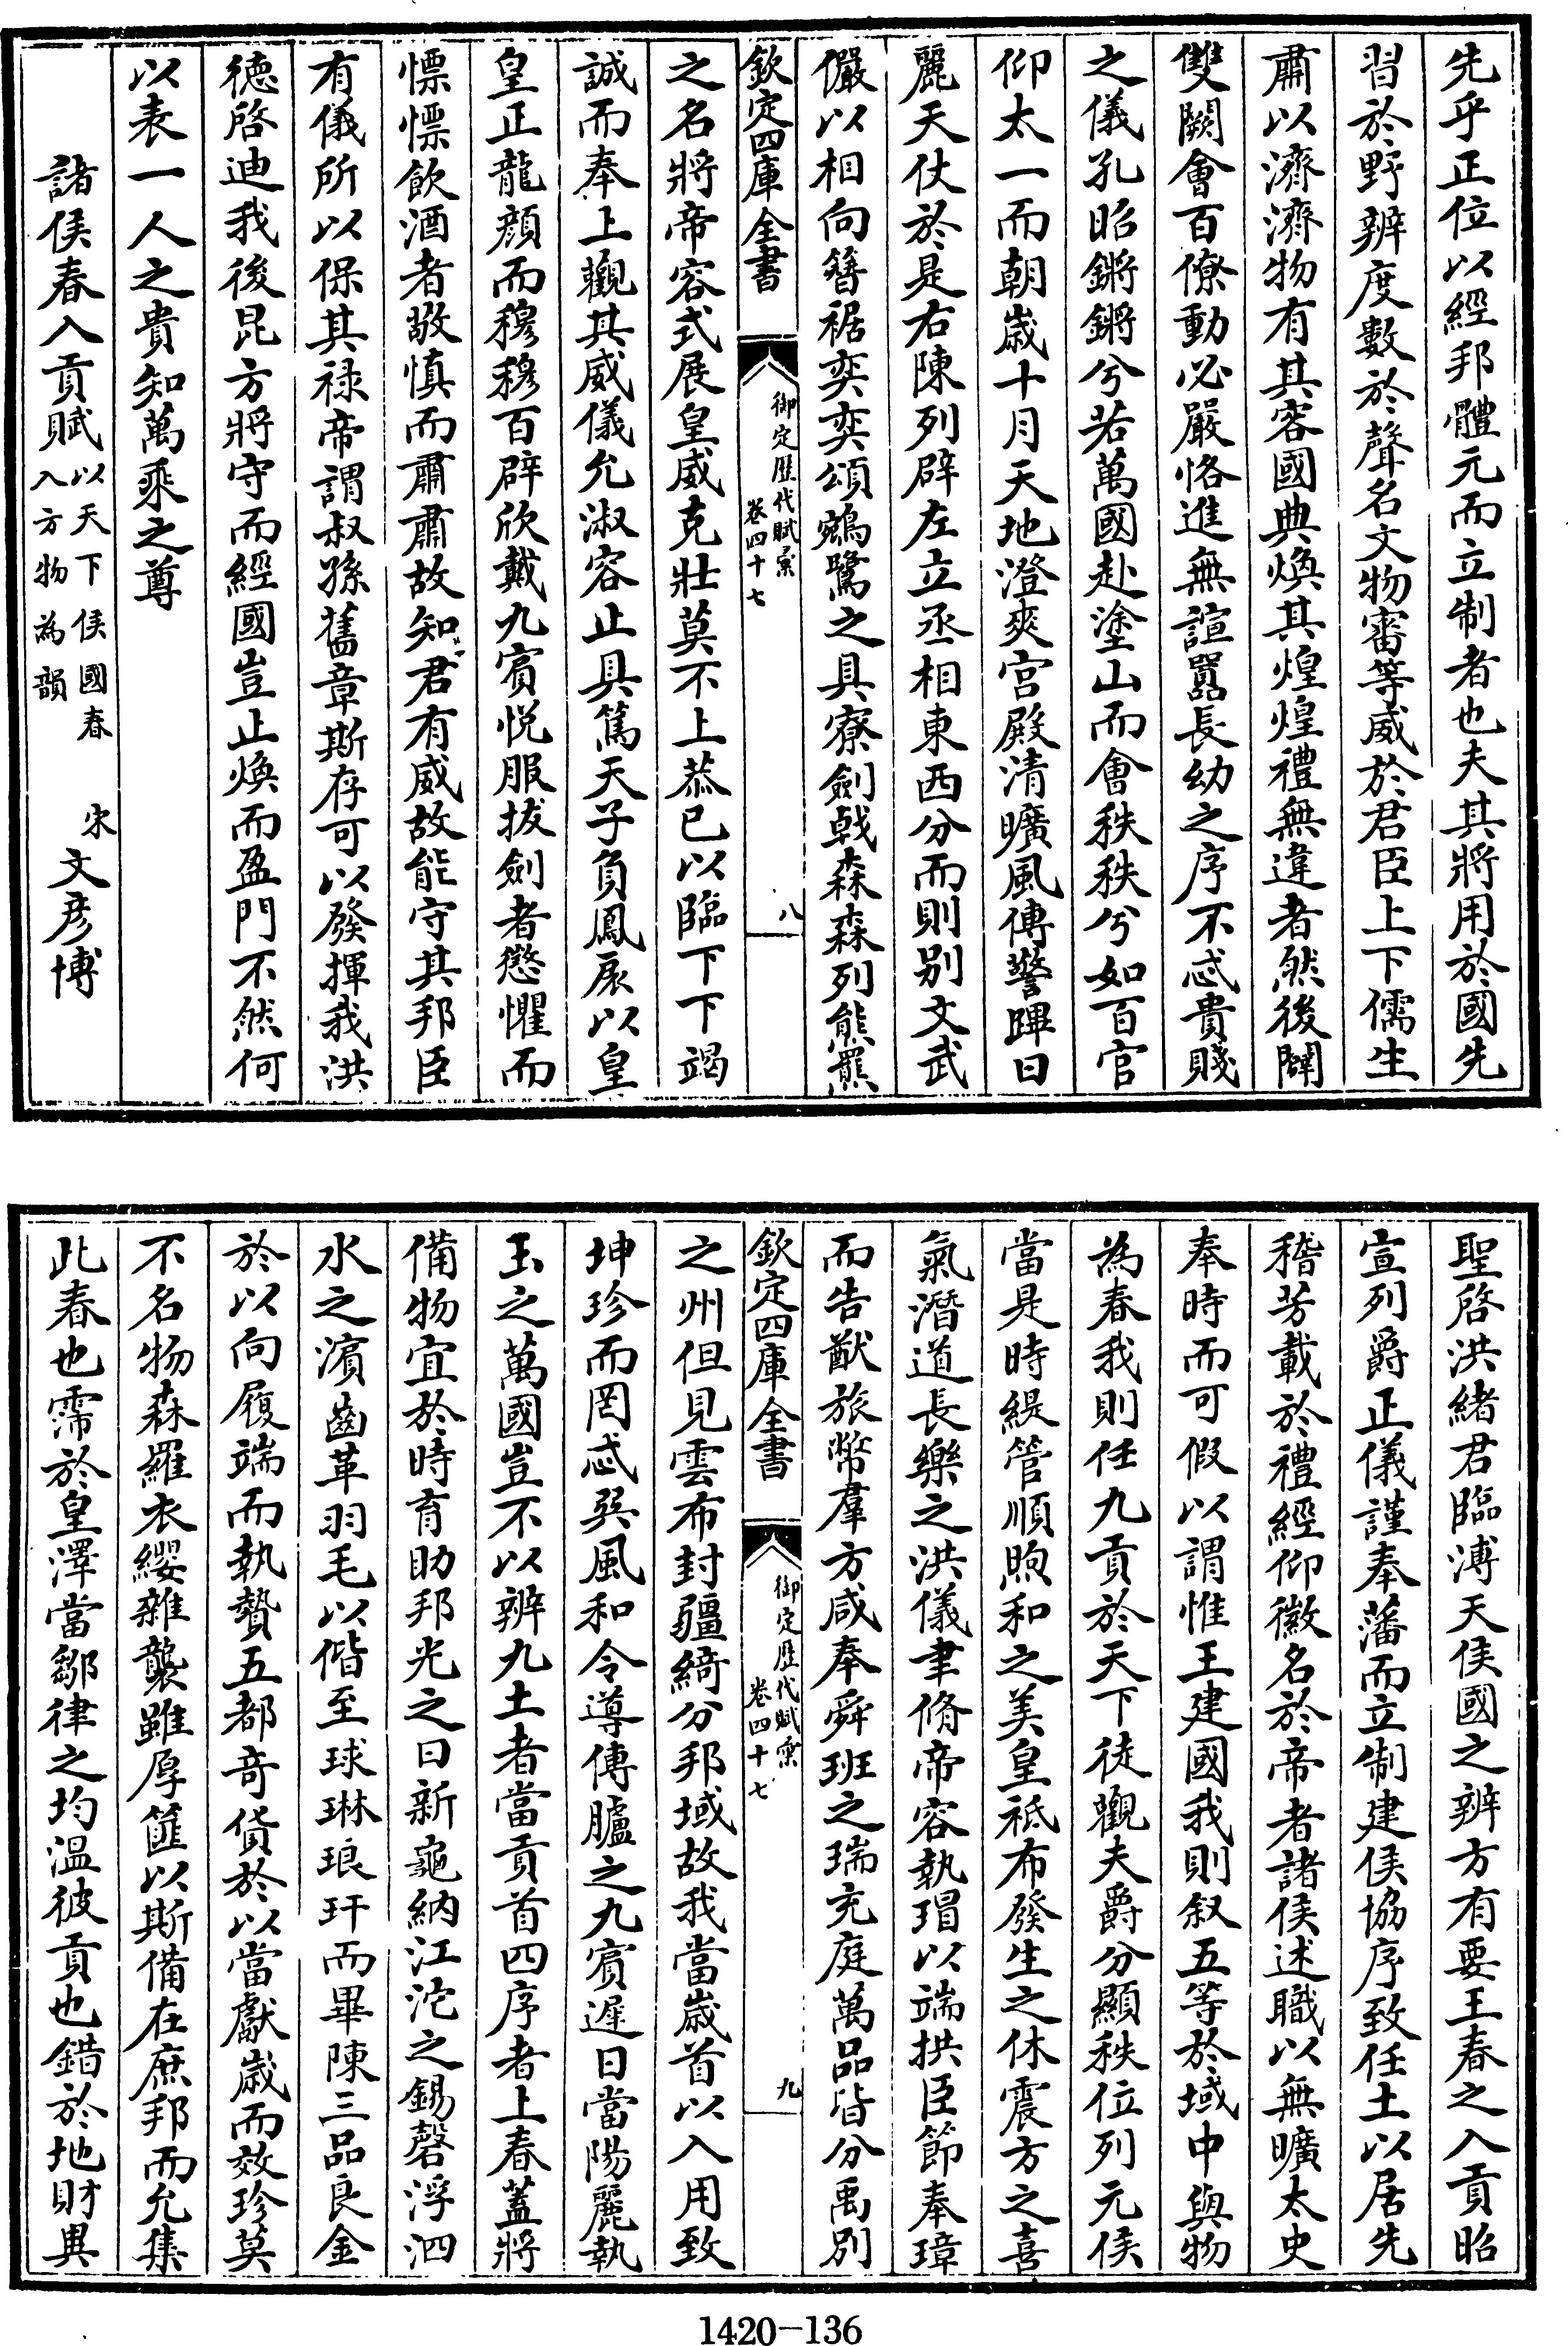 先乎正位以經邦體元而立制者也夫其將用於國先
習於野辨度數於聲名文物審等威於君臣上下儒生
肅以濟濟物有其容國典煥其煌煌禮無違者然後闢
雙闕會百僚動必嚴恪進無諠囂長幼之序不忒貴賤
之儀孔昭鏘鏘兮若萬國赴塗山而會秩秩兮如百官
仰太一而朝歲十月天地澄爽宫殿清曠風傳警蹕日
麗天仗於是右陳列辟左立丞相東西分而則别文武
儼以相向簪裾奕奕頌鵷鷺之具寮劍戟森森列熊羆
欽定四庫全書
御定歷代賦彙
卷四十七
八
之名將帝容式展皇威克壯莫不上恭已以臨下下竭
誠而奉上觀其威儀允淑容止具篤天子負鳳扆以皇
皇正龍顔而穆穆百辟欣戴九賓悦服拔劍者懲懼而
慓慓飲酒者敬慎而肅肅故知君有威故能守其邦臣
有儀所以保其禄帝謂叔孫舊章斯存可以發揮我洪
德啓迪我後昆方將守而經國豈止煥而盈門不然何
以表一人之貴知萬乘之尊
諸侯春入貢賦以天下侯國春
入方物為韻
宋
文彦博
聖啓洪緒君臨溥天侯國之辨方有要王春之入貢昭
宣列爵正儀謹奉藩而立制建侯協序致任土以居先
稽芳載於禮經仰徽名於帝者諸侯述職以無曠太史
奉時而可假以謂惟王建國我則叙五等於域中與物
為春我則任九貢於天下徒觀夫爵分顯秩位列元侯
當是時緹管順煦和之美皇祗布發生之休震方之喜
氣潛道長樂之洪儀聿脩帝容執瑁以端拱臣節奉璋
而告猷旅幣羣方咸奉舜班之瑞充庭萬品皆分禹别
欽定四庫全書
御定歷代賦彙
卷四十七
九
之州但見雲布封疆綺分邦域故我當歲首以入用致
坤珍而罔忒巽風和令導傳臚之九賓遲日當陽麗執
玉之萬國豈不以辨九土者當貢首四序者上春蓋將
備物宜於時育助邦光之日新龜納江沱之錫磬浮泗
水之濱齒革羽毛以偕至球琳琅玕而畢陳三品良金
於以向履端而執贄五都奇貨於以當獻歲而效珍莫
不名物森羅衣纓雜襲雖厚篚以斯備在庶邦而允集
此春也霈於皇澤當鄒律之均温彼貢也錯於地財與
1420—136